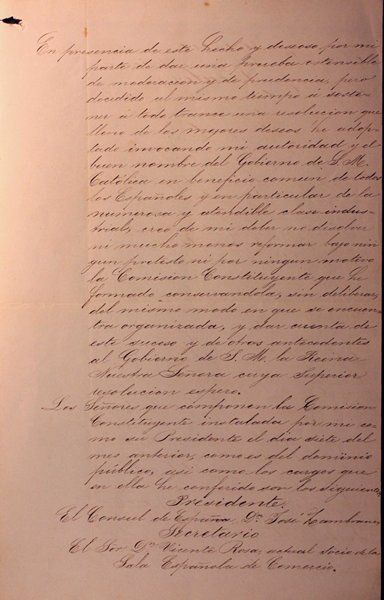 En presencia de este hecho y deseoso por mi
parte de dar una prueba ostensible
de moderacion y de prudencia, pero
decidido al mismo tiempo á soste-
ner á todo trance una resolucion que
lleno de los mejores deseos he adop-
tado invocando mi autoridad y el
buen nombre del Gobierno de S. M.
Católica en beneficio comun de todos
los Españoles y en particular de la
numerosa y atendible clase indus-
trial, creo de mi deber no disolver
ni mucho menos reformar bajo nin-
gun protesto ni por ningun motivo
la Comision Constituyente que he
formado conservandola, sin deliberar,
del mismo modo en que se encuen-
tra organizada, y dar cuenta de
este suceso y de otros antecedentes
al Gobierno de S. M. la Reina
Nuestra Señora cuya Superior
resolucion espero.
Los Señores que componen la Comision
Constituyente instalada por mi co-
mo su Presidente el dia siete del
mes anterior, como es del dominio
público, asi como los cargos que
en ella he conferido son los siguientes
Presidente,
El Consul de España Dn. José Zambrano
Secretario
El Sor. Dn. Vicente Rosa, actual socio de la
Sala Española de Comercio.